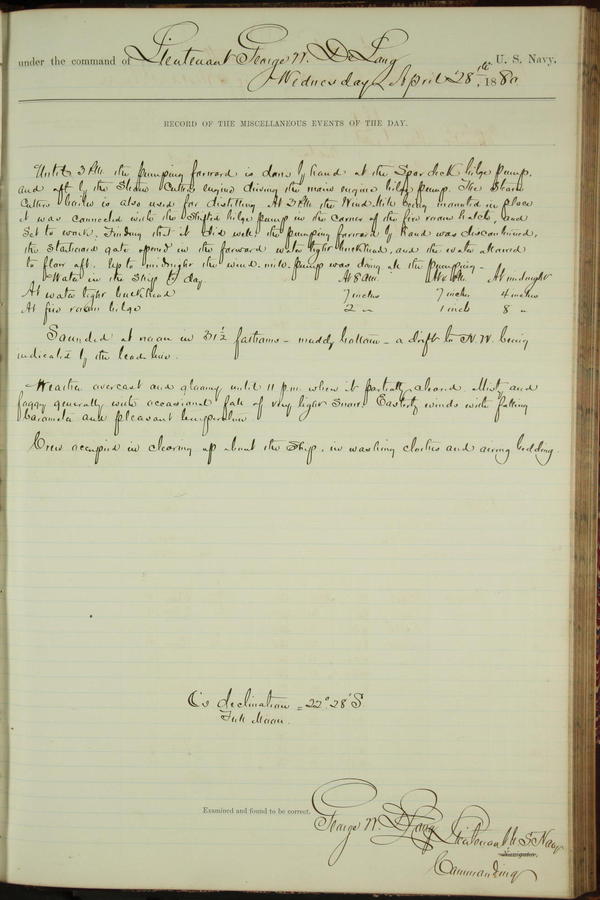 under the command of Lieutenant George W. De Long, U. S. Navy,
Wednesday, April 28th, 1880
RECORD OF THE MISCELLANEOUS EVENTS OF THE DAY.
Until 3 P.M. the pumping forward is done by hand at the Spar deck bilge pump,
and aft by the Steam Cutters engine driving the main engine bilge pump. The Steam
Cutters boiler is also used for distilling. At 3 P.M. the Wind Mill being mounted in place
it was connected with the Shifted bilge pump in the corner of the fire room hatch, and
Set to work. Finding that it did well the pumping forward by hand was discontinued,
the starboard gate opened in the forward water tight bulkhead, and the water allowed
to flow aft. Up to midnight the wind-mill-pump was doing all the pumping.-
Water in the Ship to day. At 8 A.M. At 6 P.M. At midnight
At water tight bulkhead 7 inches 7 inches 4 inches
At fire room bilge 2 " 1 inch 8 "
Sounded at noon in 31½ fathoms - muddy bottom - a drift to N.W. being
indicated by the lead line.
Weather overcast and gloomy until 11 p.m. when it partially cleared. Misty and
foggy generally with occasional fall of very light Snow. Easterly winds with falling
barometer and pleasant temperature
Crew occupied in clearing up about the Ship, in washing clothes and airing bedding.
☾'s declination = 22° 28' S
Full Moon.
Examined and found to be correct.
George W. De Long Lieutenant U. S. Navy
Navigator.
Commanding